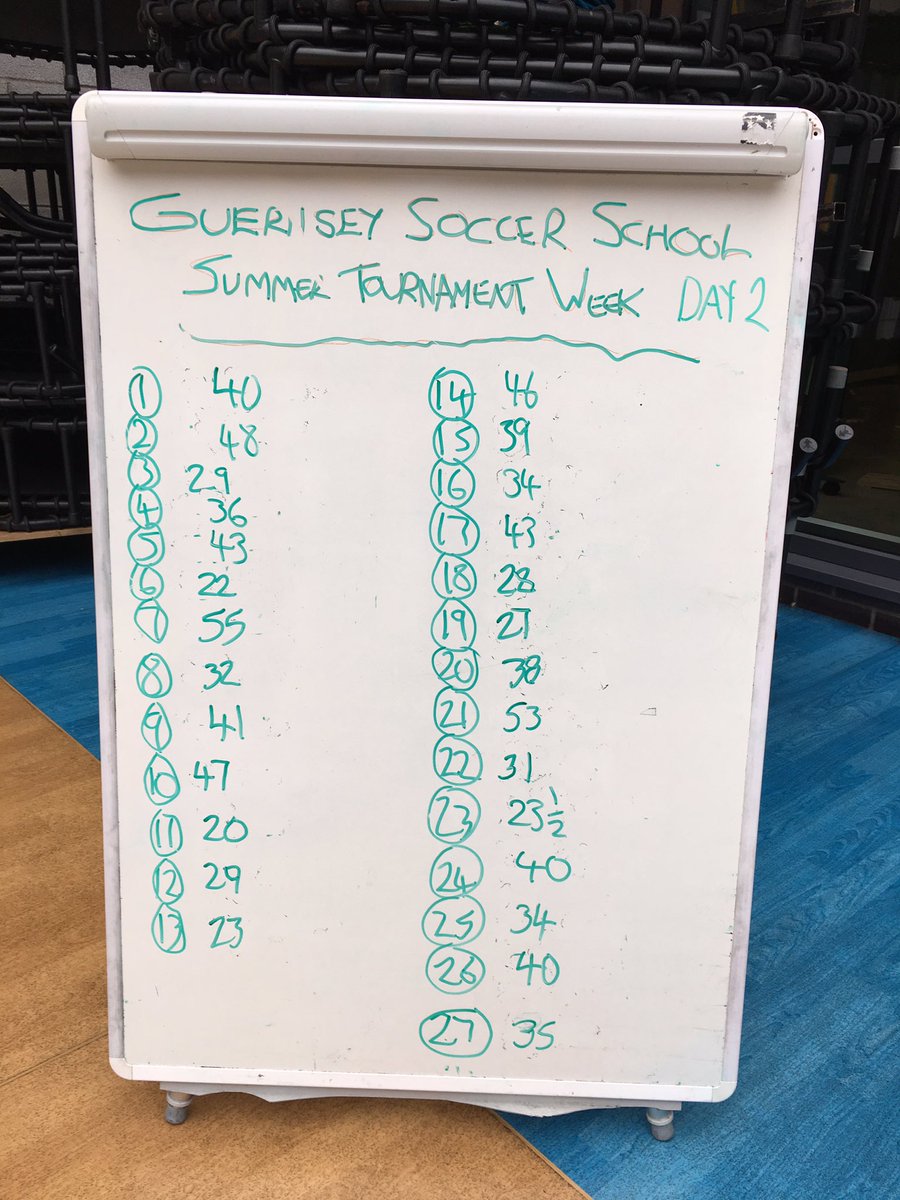 GUERNSEY SOCCER SCHOOL
SUMMER TOURNAMENT WEEK DAY 2
1 40
2 48
3 29
4 36
5 43
6 22
7 55
8 32
9 41
10 47
11 20
12 29
13 23
14 46
15 39
16 34
17 43
18 28
19 27
20 38
21 53
22 31
23 23 1/2
24 40
25 34
26 40
27 35